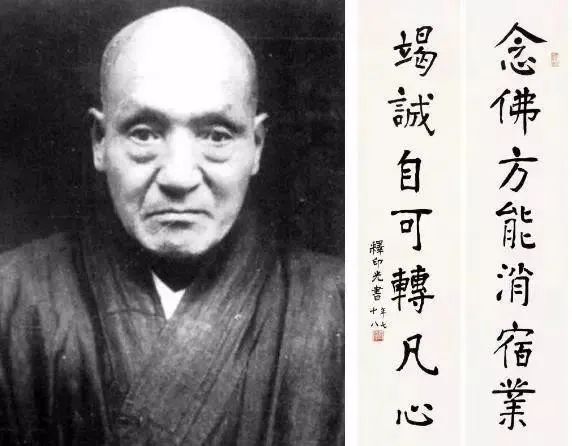 念佛方能消宿業
竭誠自可轉凡心
釋印光書
年七十八